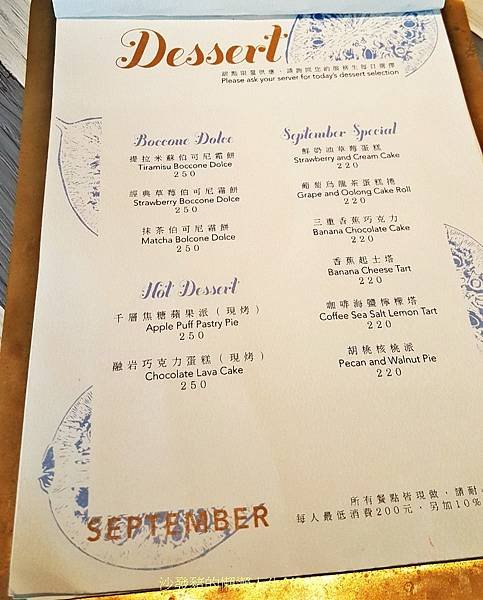 Dessert
甜點限量供應，請詢問您的服務生每日選擇
Please ask your server for today's dessert selection
Boccone Dolce
提拉米蘇伯可尼霜餅
Tiramisu Boccone Dolce
250
經典草莓伯可尼霜餅
Strawberry Boccone Dolce
250
抹茶伯可尼霜餅
Matcha Bolcone Dolce
250
Hot Dessert
千層焦糖蘋果派（現烤）
Apple Puff Pastry Pie
250
融岩巧克力蛋糕（現烤）
Chocolate Lava Cake
250
September Special
鮮奶油草莓蛋糕
Strawberry and Cream Cake
220
葡萄烏龍茶蛋糕捲
Grape and Oolong Cake Roll
220
三重香蕉巧克力
Banana Chocolate Cake
220
香蕉起士塔
Banana Cheese Tart
220
咖啡海鹽檸檬塔
Coffee Sea Salt Lemon Tart
220
胡桃核桃派
Pecan and Walnut Pie
220
SEPTEMBER
所有餐點皆現做，請耐
每人最低消費200元，另加10%
沙發豬的